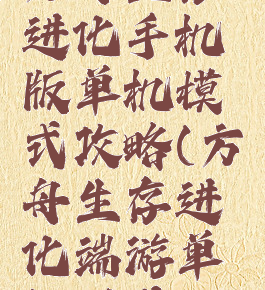 进化手机
版单机模
式攻略(方
舟生存进
化端游单